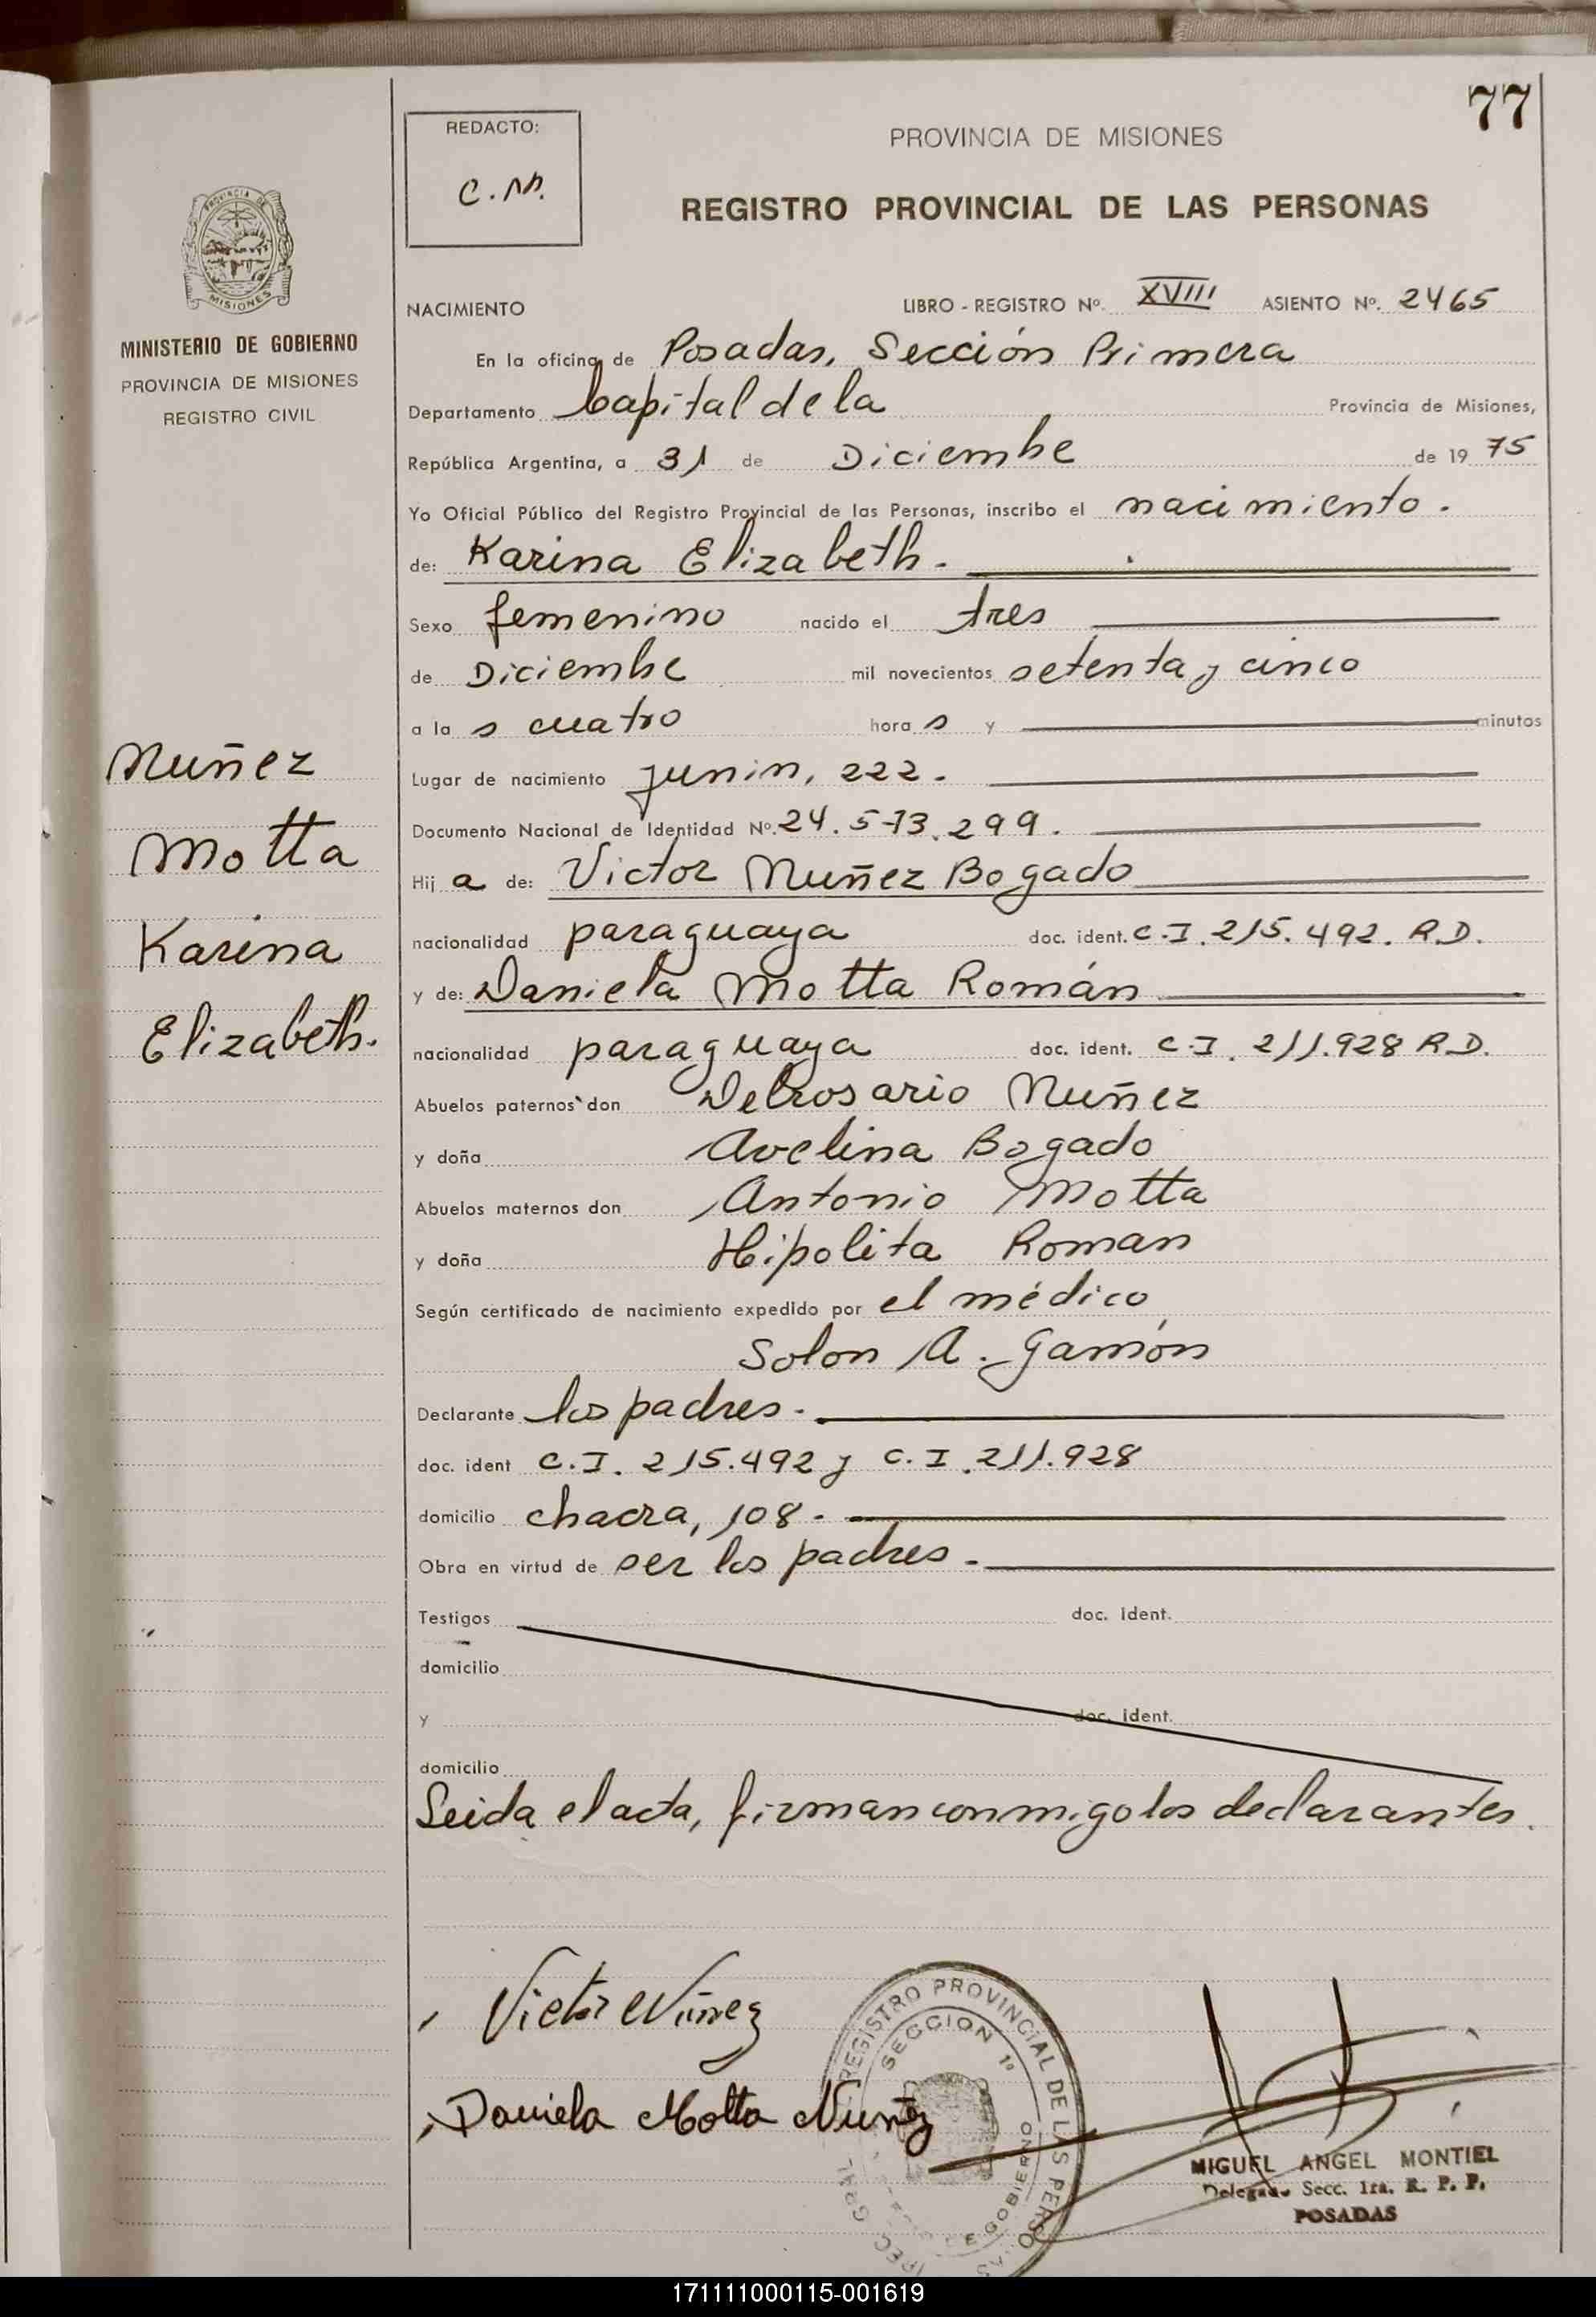 77
REDACTO:
C.M.
PROVINCIA DE MISIONES
REGISTRO PROVINCIAL DE LAS PERSONAS
PROVINCIA DE
MISIONES
MINISTERIO DE GOBIERNO
PROVINCIA DE MISIONES
REGISTRO CIVIL
Nuñez
Motta
Karina
Elizabeth.
NACIMIENTO LIBRO - REGISTRO Nº. XVIII ASIENTO Nº. 2465
En la oficina de Posadas, Sección Primera
Departamento Capital de la Provincia de Misiones,
República Argentina, a 31 de Diciembre de 19 75
Yo Oficial Público del Registro Provincial de las Personas, inscribo el nacimiento.
de: Karina Elizabeth.
Sexo femenino nacido el tres
de Diciembre mil novecientos setenta y cinco
a la s cuatro hora s y minutos
Lugar de nacimiento Junin, 222.
Documento Nacional de Identidad Nº. 24.573.299.
Hij a de: Victor Nuñez Bogado
nacionalidad paraguaya doc. ident. C.I. 215.492. R.D.
y de: Daniela Motta Román
nacionalidad paraguaya doc. ident. C.I. 211.928 R.D.
Abuelos paternos don Delrosario Nuñez
y doña Avelina Bogado
Abuelos maternos don Antonio Motta
y doña Hipolita Roman
Según certificado de nacimiento expedido por el médico
Solon A. Gamón
Declarante los padres.
doc. ident C.I. 215.492 y C.I. 211.928
domicilio chacra, 108.
Obra en virtud de ser los padres.
Testigos doc. ident.
domicilio
y doc. ident.
domicilio
Leida el acta, firman conmigo los declarantes.
Victor Núñez
Daniela Motta Nuñez
REGISTRO PROVINCIAL DE LAS PERSONAS
SECCION 1ª
DE GOBIERNO
MIGUEL ANGEL MONTIEL
Delegado Secc. 1ra. R. P. P.
POSADAS
171111000115-001619